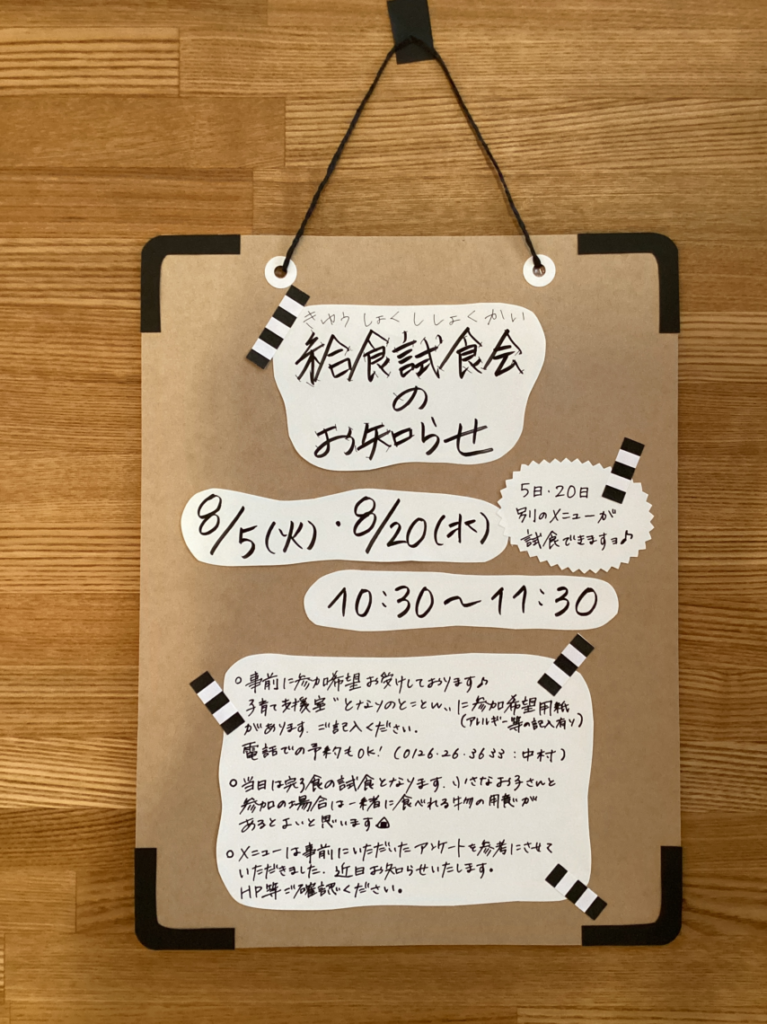 きゅう しょく し しょく かい
給食試食会
の
お知らせ
8/5(火)・8/20(水)
5日・20日
別のメニューが
試食できますョ♪
10:30〜11:30
○ 事前に参加希望お受けしております♪
子育て支援室〝となりのとことん〟に参加希望用紙
(アレルギー等の記入有り)
があります。ご記入ください。
電話での予約もOK!(0126・26・3633:中村)
○ 当日は完了食の試食となります。小さなお子さんと
参加の場合は一緒に食べれる物の用意が
あるとよいと思います🍙
○ メニューは事前にいただいたアンケートを参考にさせて
いただきました。近日お知らせいたします。
HP等ご確認ください。